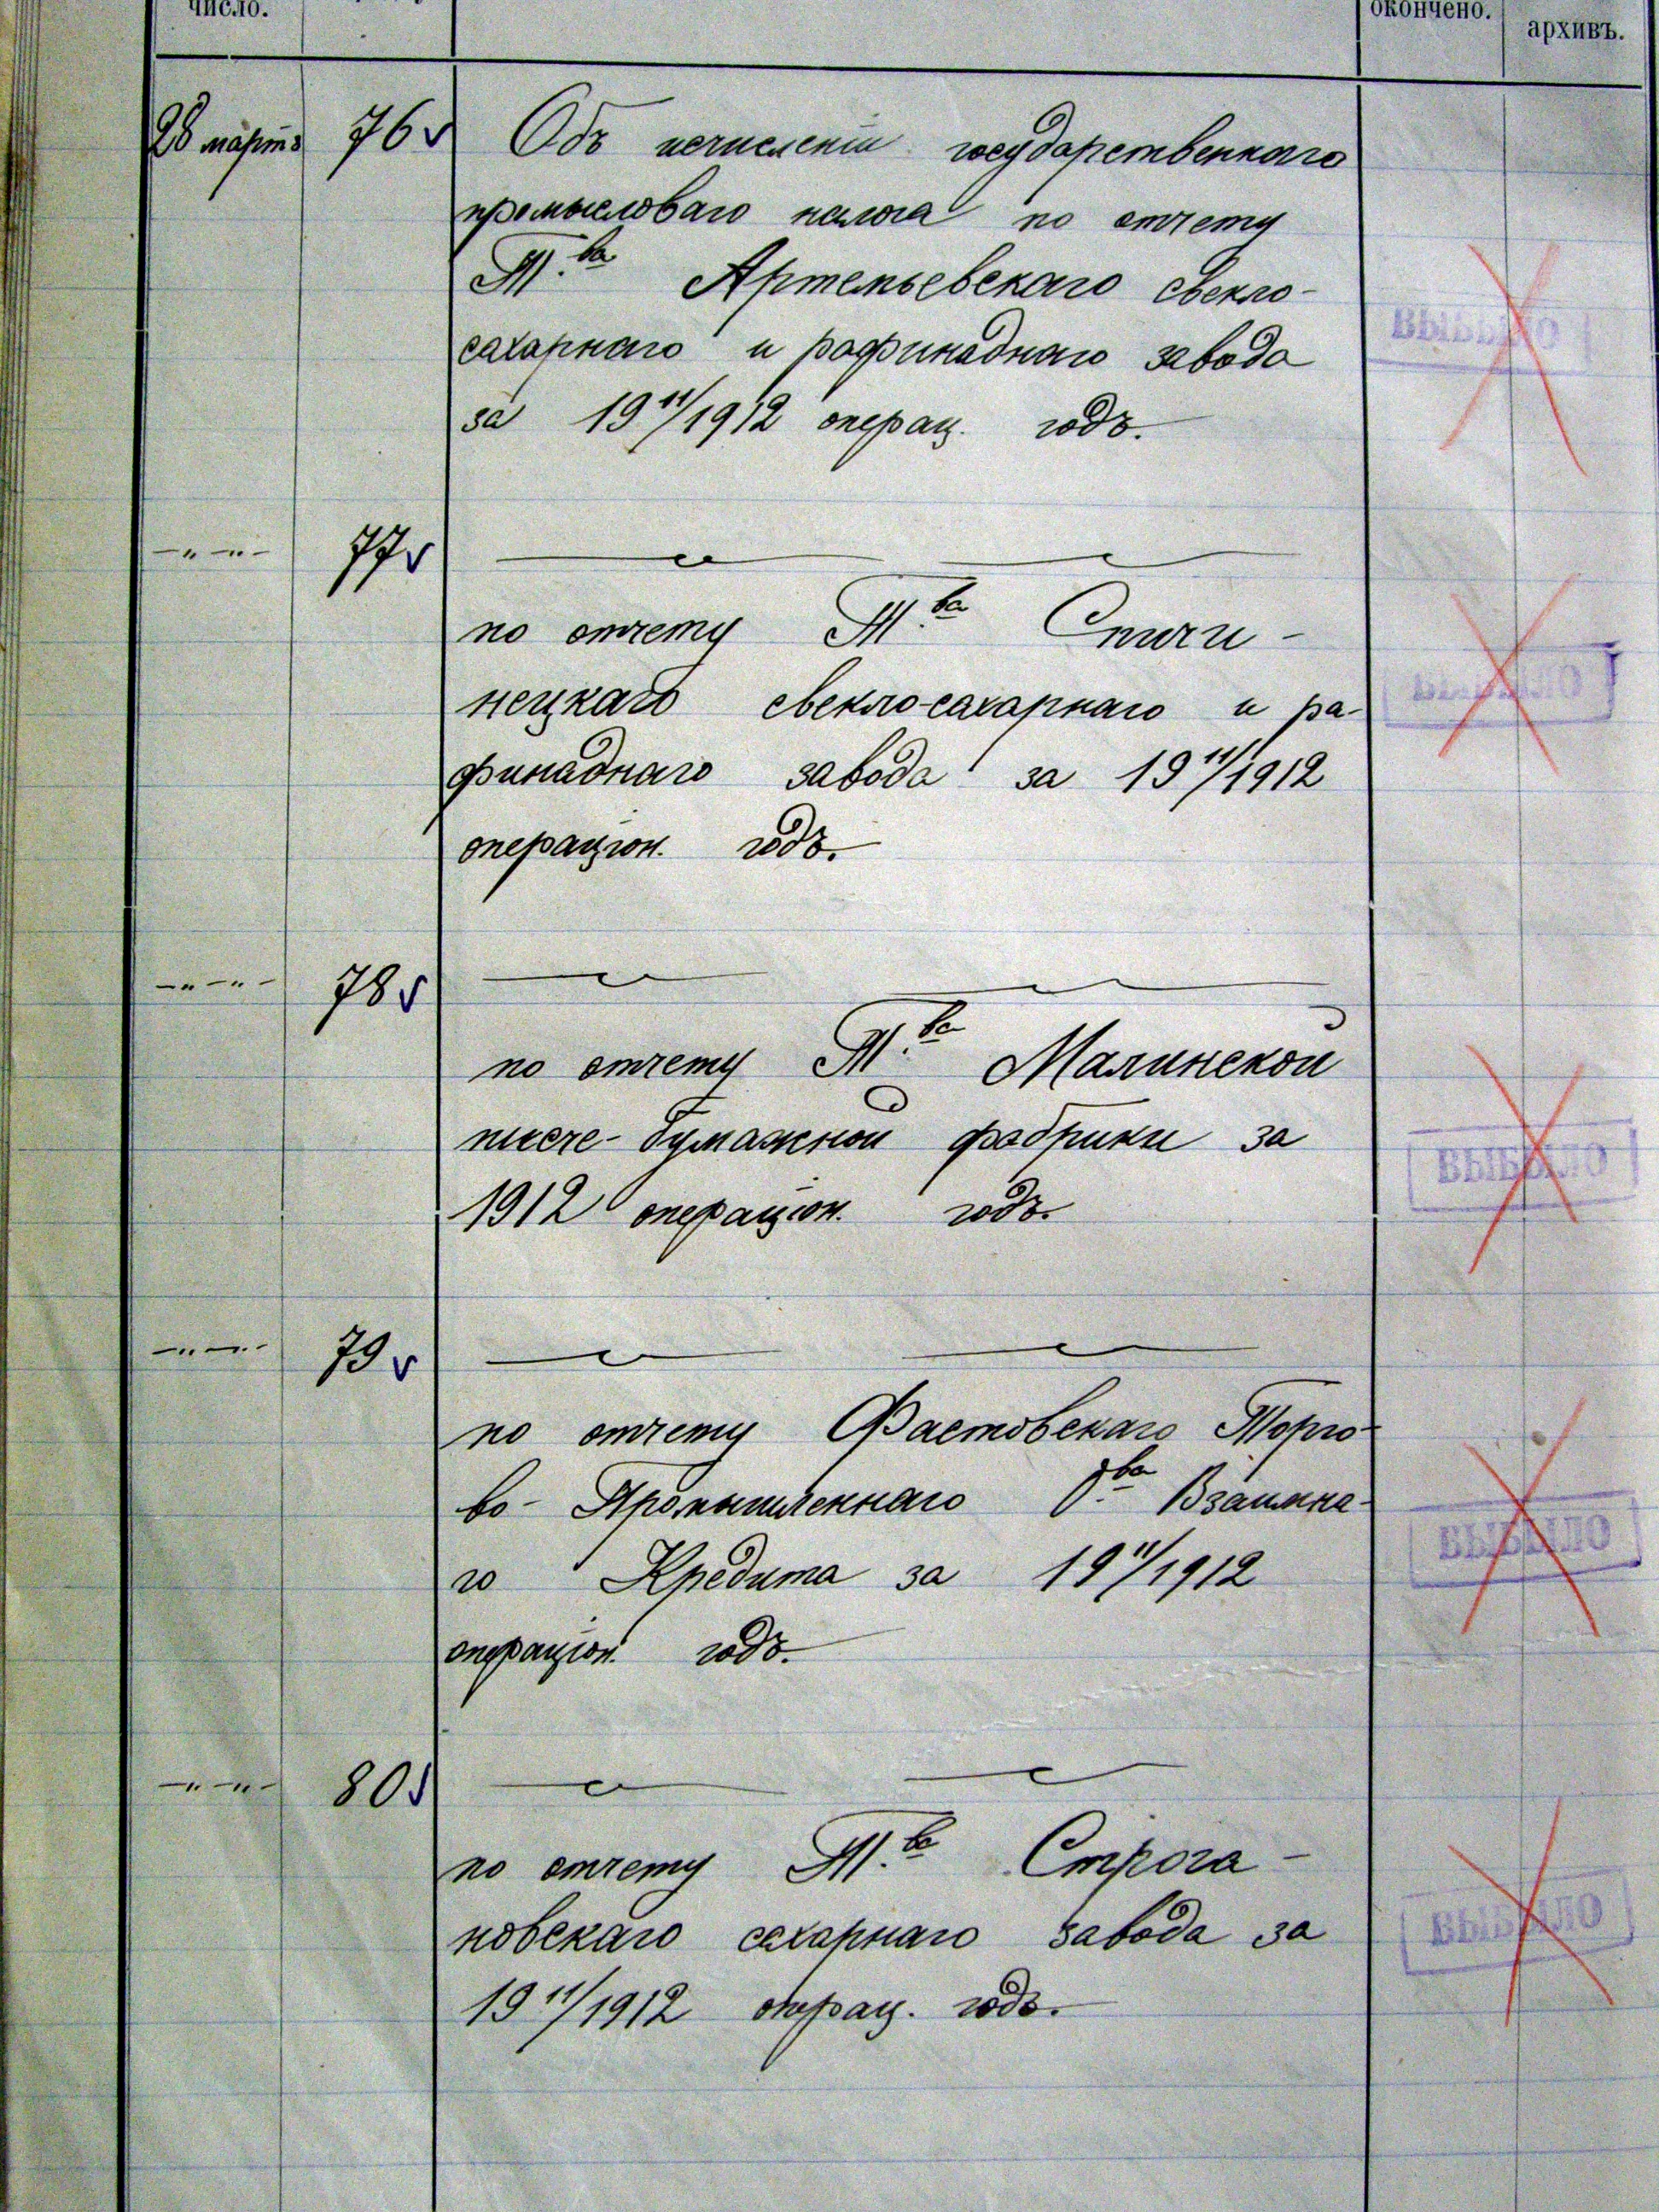 число.
окончено.
архивъ.
28 марта 76 Объ исчисленіи государственнаго
промысловаго налога по отчету
Т.ва Артемьевскаго свекло-
сахарнаго и рафинаднаго завода
за 1911/1912 операц. годъ.
ВЫБЫЛО
—"—"— 77
по отчету Т.ва Спичи-
нецкаго свекло-сахарнаго и ра-
финаднаго завода за 1911/1912
операціон. годъ.
ВЫБЫЛО
—"—"— 78
по отчету Т.ва Малинской
писче-бумажной фабрики за
1912 операціон. годъ.
ВЫБЫЛО
—"—"— 79
по отчету Фастовскаго Торго-
во-Промышленнаго О.ва Взаимна-
го Кредита за 1911/1912
операціон. годъ.
ВЫБЫЛО
—"—"— 80
по отчету Т.ва Строга-
новскаго сахарнаго завода за
1911/1912 операц. годъ.
ВЫБЫЛО